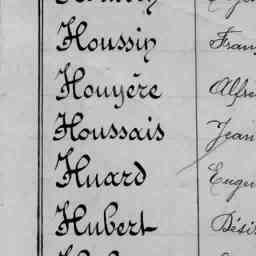 Houssin Fran
Houyère Alfre
Houssais Jean
Huard Eugè
Hubert Dési